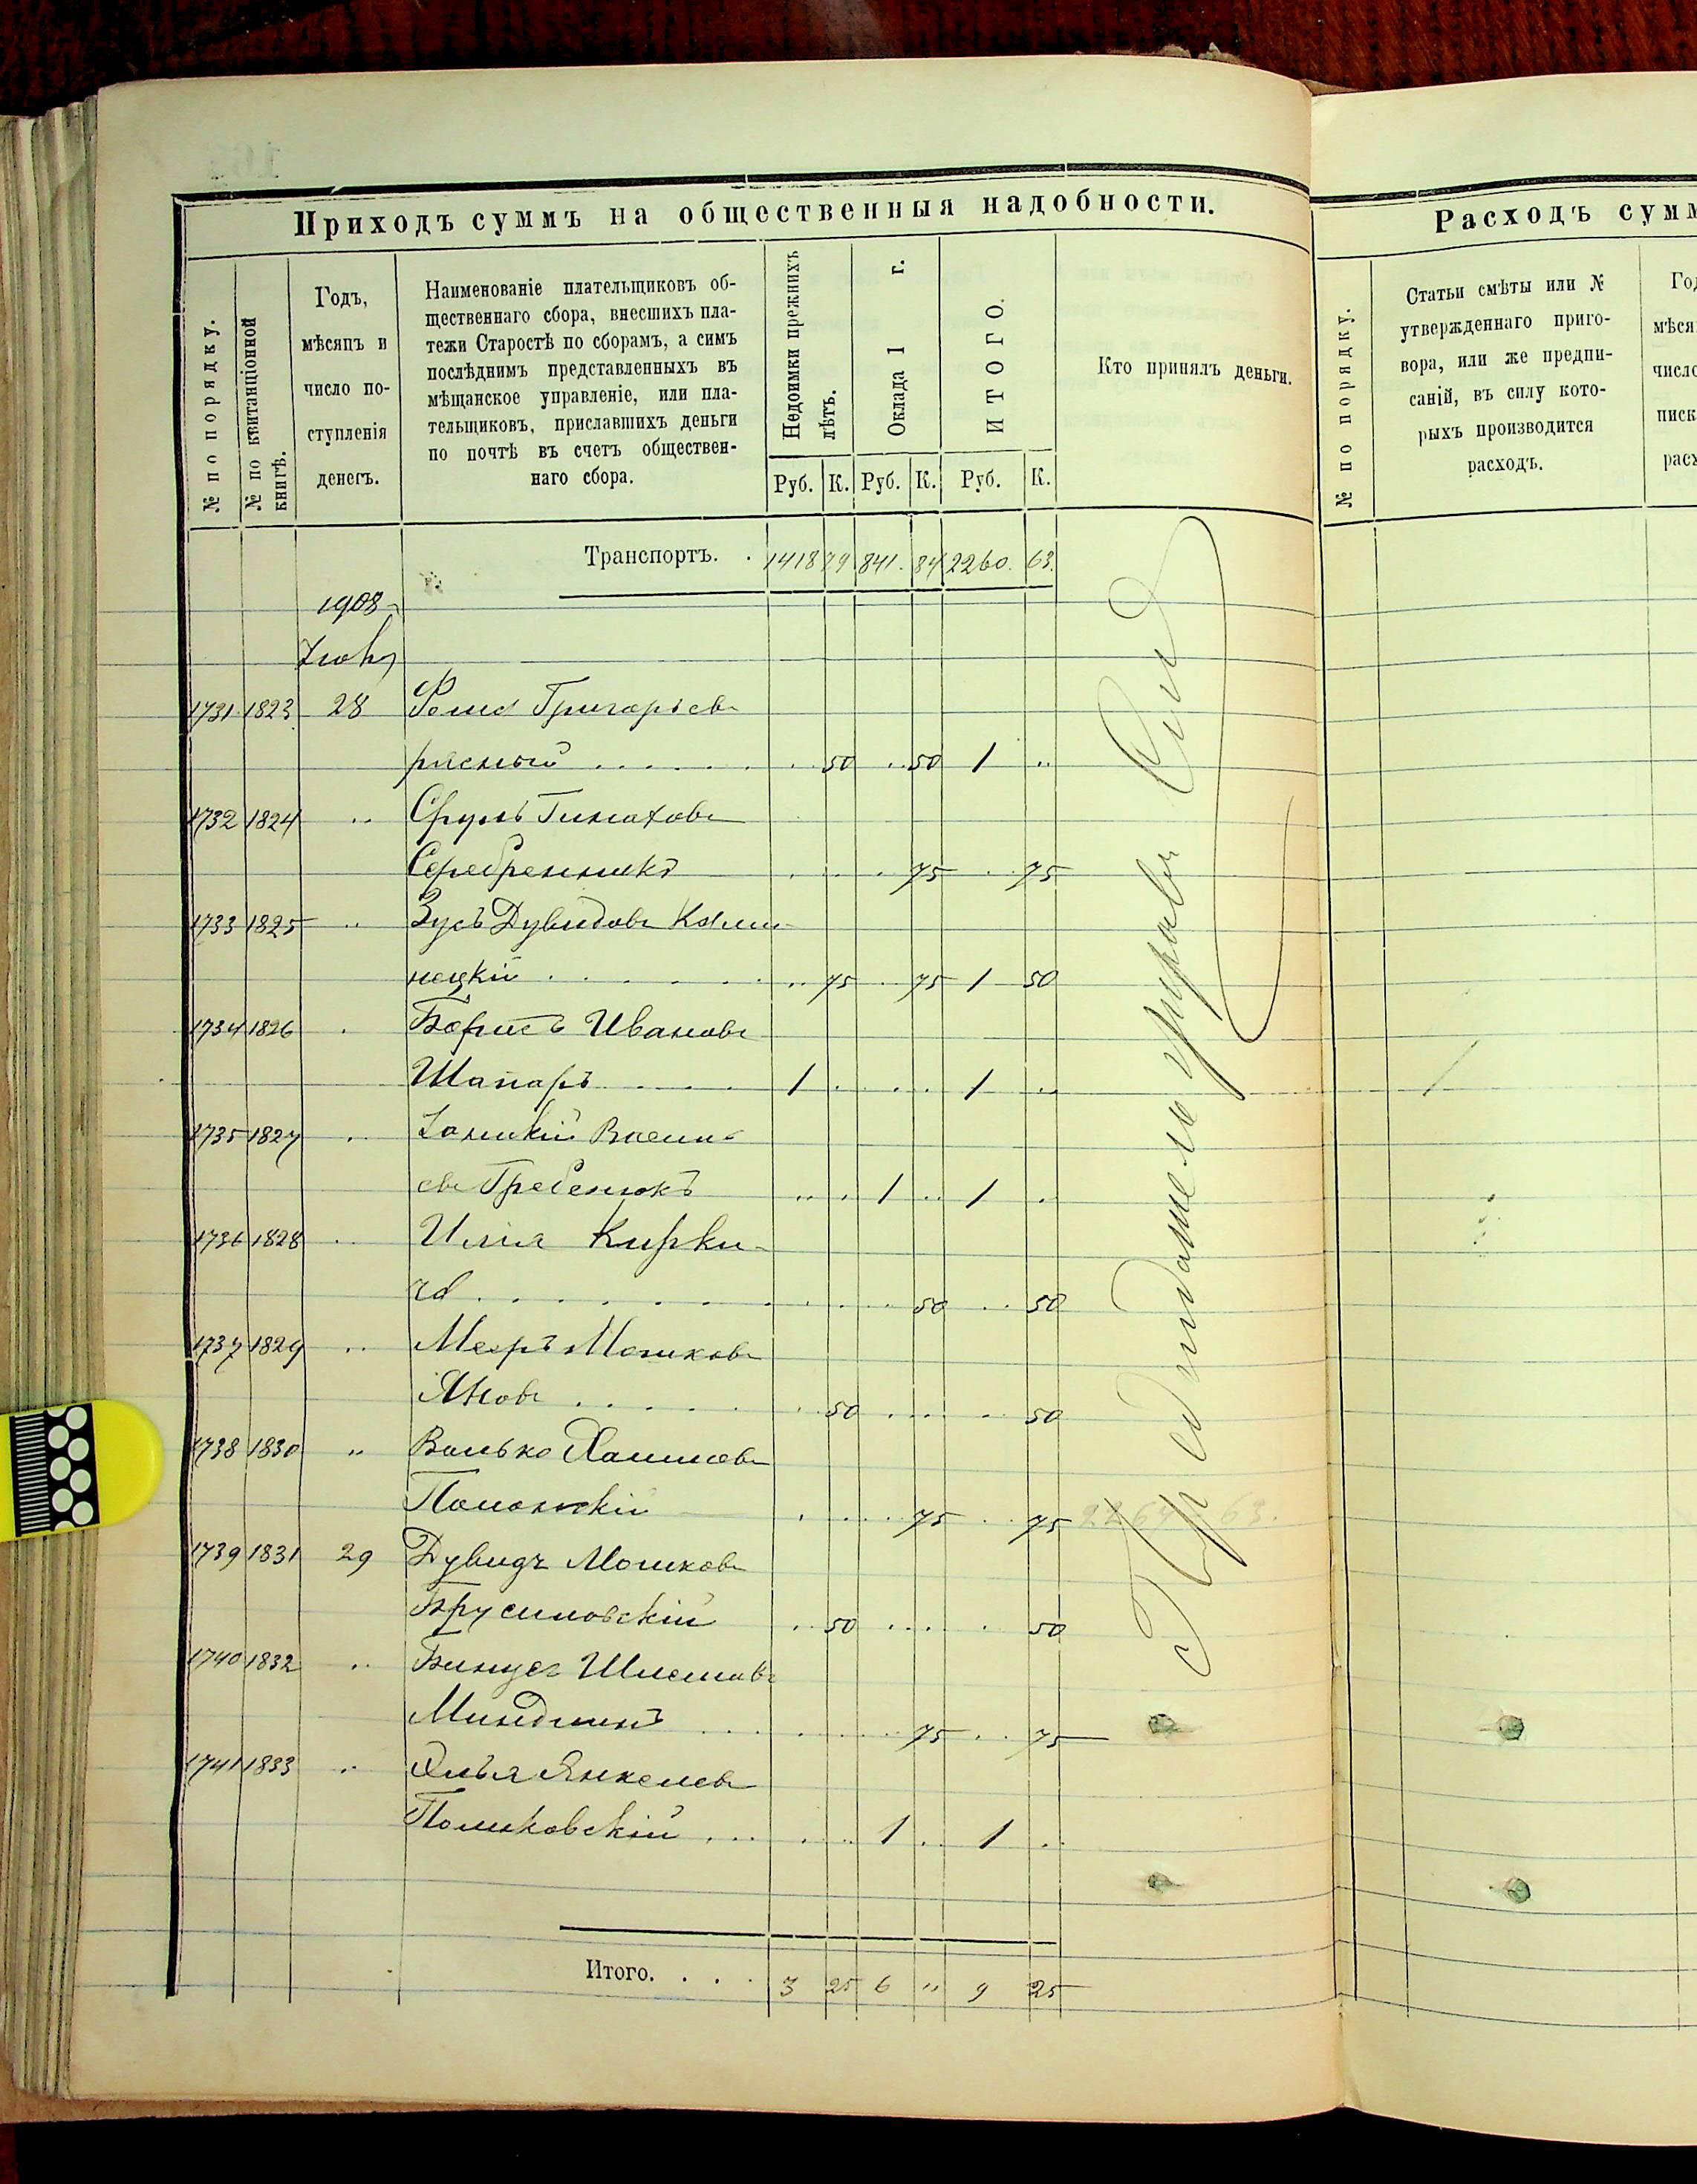 Приходъ суммъ на общественныя надобности.
№ по порядку.
№ по квитанціонной книгѣ.
Годъ,
мѣсяцъ и
число по-
ступленія
денегъ.
Наименованіе плательщиковъ об-
щественнаго сбора, внесшихъ пла-
тежи Старостѣ по сборамъ, а симъ
послѣднимъ представленныхъ въ
мѣщанское управленіе, или пла-
тельщиковъ, приславшихъ деньги
по почтѣ въ счетъ обществен-
наго сбора.
Недоимки прежнихъ
лѣтъ.
Оклада 1 г.
ИТОГО.
Кто принялъ деньги.
Руб. К. Руб. К. Руб. К.
Транспортъ. . 1418 79 841. 84 2260. 63.
1908
1731 1823 28 Григорьевъ
50 50 1 ..
1732 1824 ..
Серебренникъ 75 75
1733 1825 .. Зусь Дувидовъ Каме-
нецкій 75 75 1 50
1734 1826 . Борисъ Ивановъ
Шапаръ 1 1 ..
1735 1827 ..
евъ Гребенюкъ 1 1 .
1736 1828 .. Илья Кирки-
50 50
1737 1829 .. Мееръ Мошковъ
Яновъ 50 50
1738 1830 .. Волько
75 75 2264 63.
1739 1831 29 Дувидъ Мошковъ
Брусиловскій 50 50
1740 1832 ..
Миндлинъ 75 75
1741 1833 .. Янкелевъ
1 1 .
Итого. . . . 3 25 6 " 9 25
Предъидатель управы
Расходъ сумм
№ по порядку.
Статьи смѣты или №
утвержденнаго приго-
вора, или же предпи-
саній, въ силу кото-
рыхъ производится
расходъ.
Год
мѣся
число
писк
расх